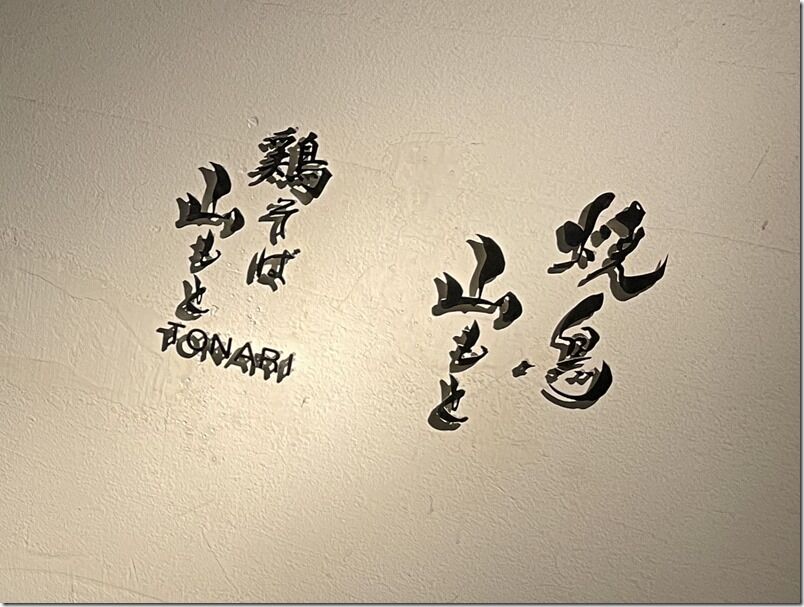 焼鳥
山もと
鶏そば
山もと
TONARI